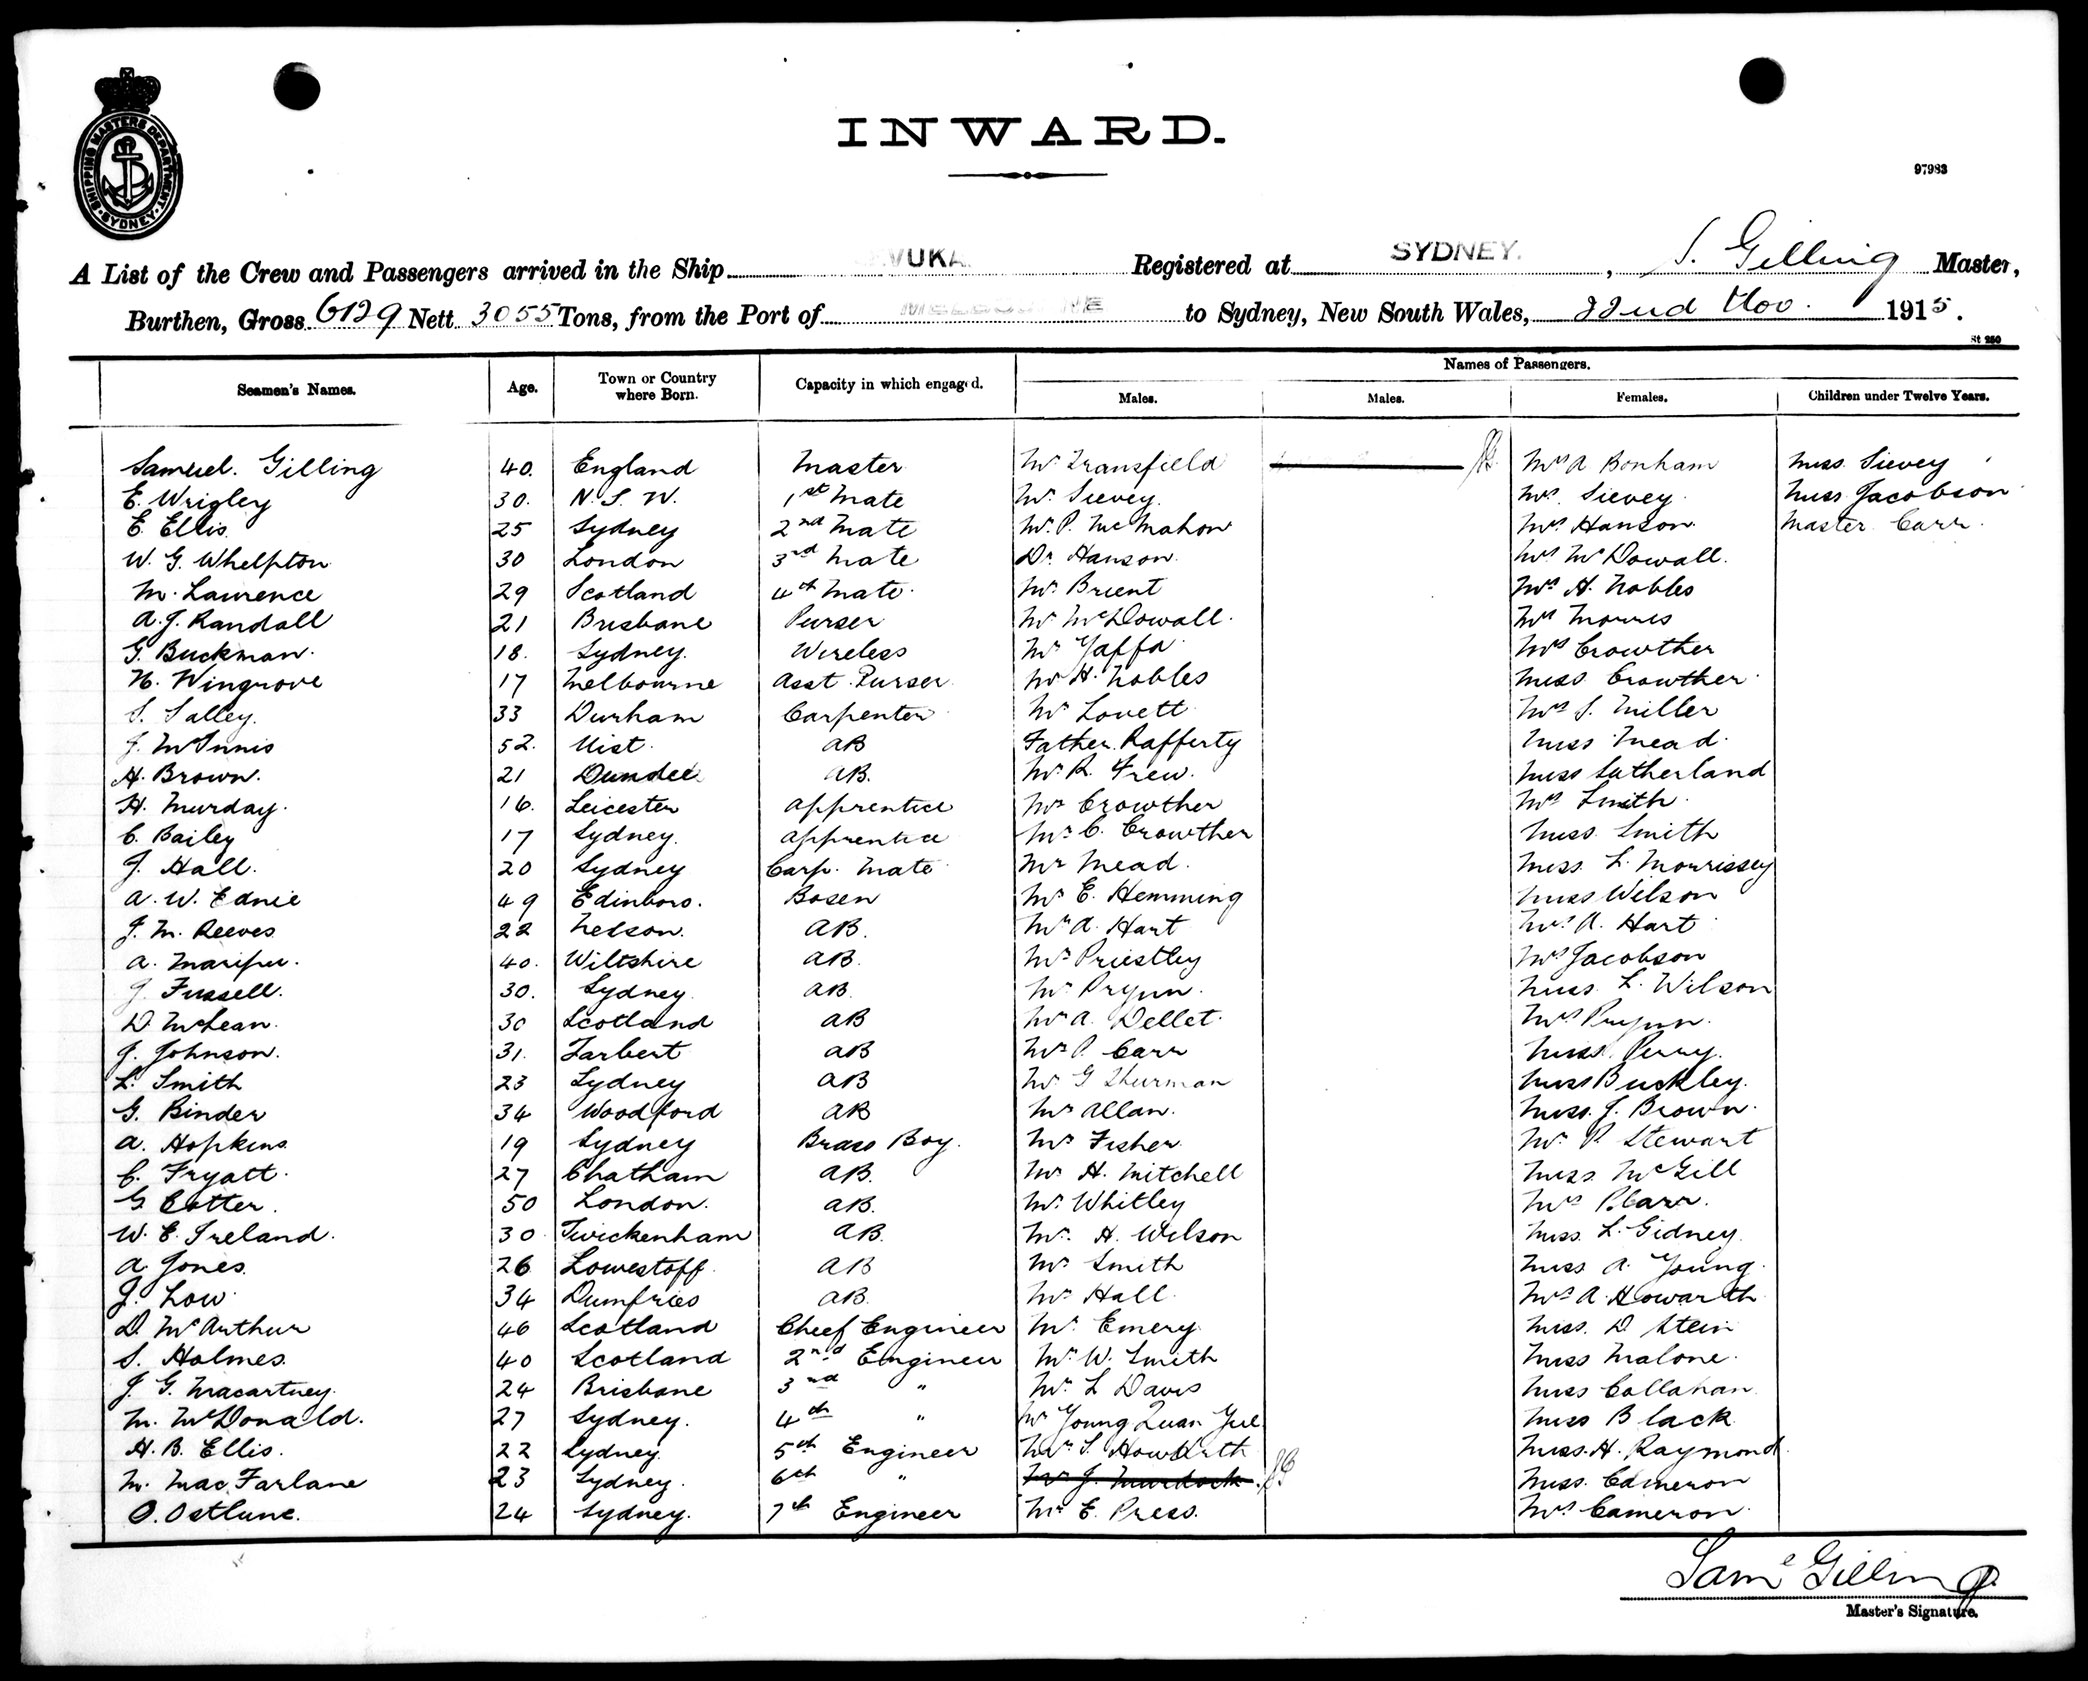 INWARD.
97983
SHIPPING MASTERS DEPARTMENT
SYDNEY
A List of the Crew and Passengers arrived in the Ship VUKA Registered at SYDNEY. , S. Gilling Master,
Burthen, Gross 6129 Nett 3055 Tons, from the Port of MELBOURNE to Sydney, New South Wales, 22nd Nov. 1915.
St 250
Names of Passengers.
Seamen's Names. Age. Town or Country where Born. Capacity in which engaged. Males. Males. Females. Children under Twelve Years.
Samuel. Gilling 40. England Master Mr Transfield Mrs A Bonham Miss Sievey
E. Wrigley 30. N.S.W. 1st Mate Mr. Sievey. Mrs. Sievey. Miss Jacobson
E. Ellis. 25 Sydney 2nd Mate Mr. P. McMahon Mrs Hanson. Master Carr.
W. G. Whelpton 30 London 3rd Mate Dr. Hanson. Mrs McDowall.
M. Laurence 29 Scotland 4th Mate. Mr. Brient Mrs H. Nobles
A.J. Randall 21 Brisbane Purser Mr McDowall. Mrs Morris
G. Buckman. 18. Sydney. Wireless Mr Yaffa Mrs Crowther
N. Wingrove 17 Melbourne Asst. Purser. Mr H. Nobles Miss Crowther
S. Salley. 33 Durham Carpenter Mr Lovett Mrs S. Miller
J. McInnis 52. Uist. AB Father Rafferty Miss Mead.
H. Brown. 21 Dundee AB. Mr. R. Frew. Miss Sutherland
H. Murday. 16. Leicester Apprentice Mr Crowther Mrs Smith.
C. Bailey 17 Sydney. Apprentice Mr. C. Crowther Miss. Smith
J. Hall. 20 Sydney Carp. Mate Mr Mead. Miss. L. Morrissey
A. W. Ednie 49 Edinboro. Bosen Mr E. Hemming Miss Wilson
J. M. Reeves 22 Nelson. AB. Mr A. Hart Mrs. A. Hart
A. 40. Wiltshire AB. Mr Priestley Mrs Jacobson
J. Fussell. 30. Sydney AB. Mr. Prynn. Miss. L. Wilson
D. McLean. 30 Scotland AB Mr A. Dellet. Mrs Prynn.
J. Johnson. 31. Tarbert AB Mr P. Carr Miss. Perry.
L. Smith 23 Sydney AB Mr. G Thurman Miss Buckley.
G. Binder 34 Woodford AB Mr Allan. Miss. J. Brown.
A. Hopkins. 19 Sydney Brass Boy. Mr Fisher. Mr. P. Stewart
C. Fryatt. 27 Chatham AB. Mr H. Mitchell Miss. McGill
G Cotter. 50 London. AB. Mr. Whitley Mrs P. Carr.
W. E. Ireland. 30 Twickenham AB. Mr. H. Wilson Miss. L. Gidney.
A Jones. 26 Lowestoff. AB Mr Smith Miss A. Young.
J. Low 34 Dumfries AB. Mr Hall. Mrs A. Howarth
D. McArthur 46 Scotland Cheef Engineer Mr. Emery. Miss. D Stein
S. Holmes. 40 Scotland 2nd Engineer Mr. W. Smith Miss Malone.
J. G. Macartney. 24 Brisbane 3nd " Mr. L Davis Miss Callahan.
M. McDonald. 27 Sydney. 4th " Mr Young Quan Yul. Miss Black
H. B. Ellis. 22 Sydney. 5th Engineer Mr. S. Howarth Miss. H. Raymond
M. MacFarlane 23 Sydney. 6th " Mr J. Murdock. Miss. Cameron
O. Ostlune. 24 Sydney. 7th Engineer Mr E. Press. Mrs Cameron.
Saml Gilling
Master's Signature.